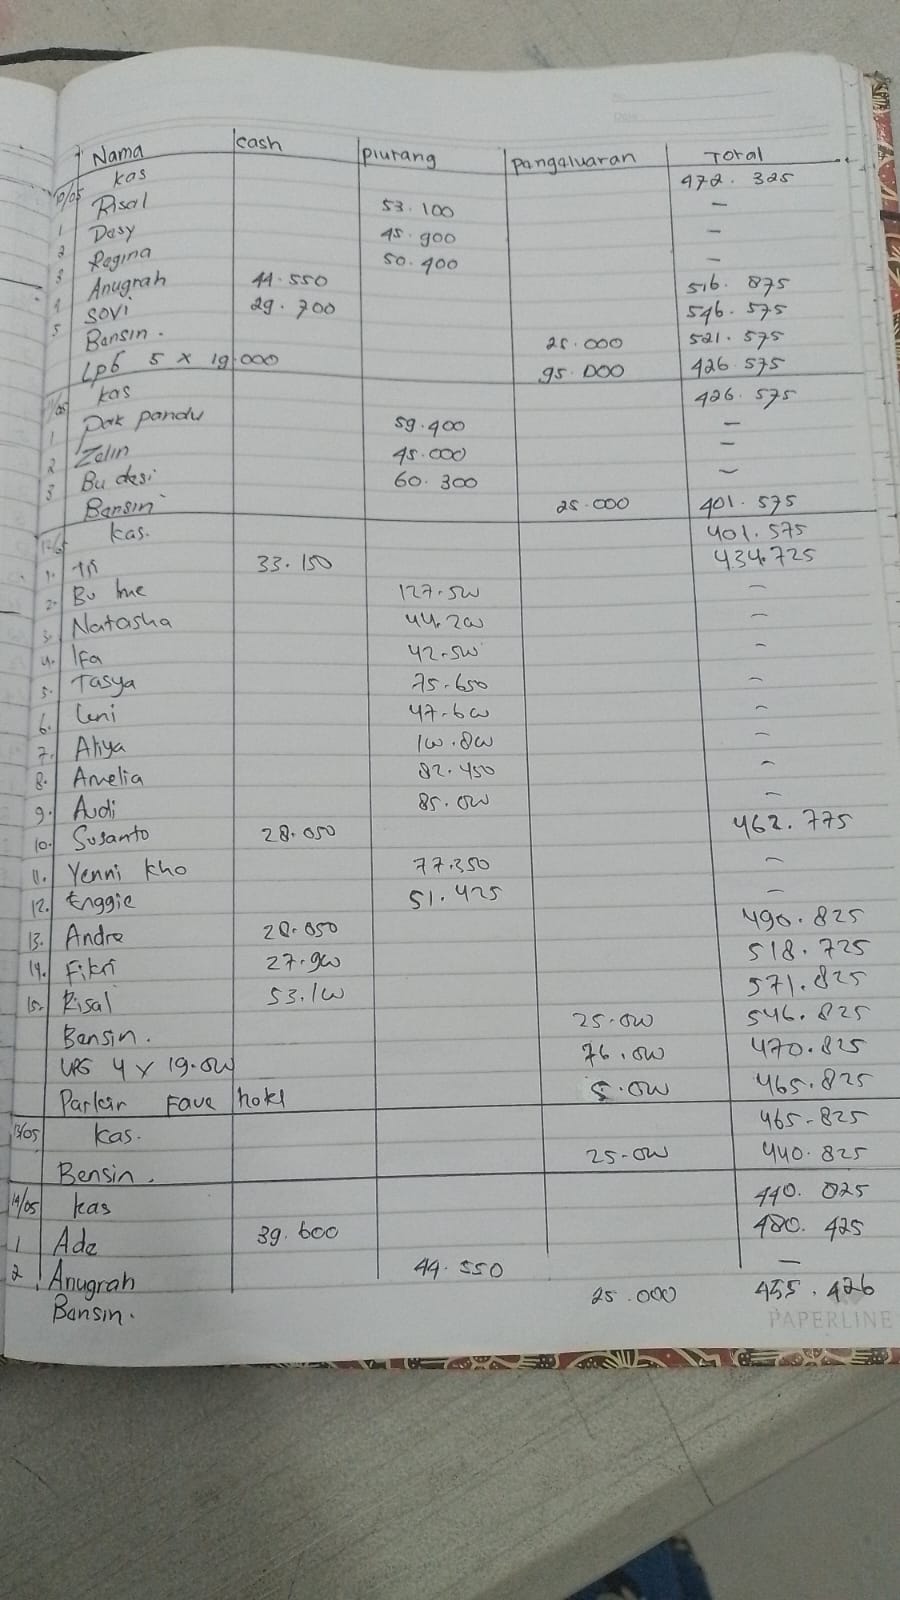 Nama cash piutang pangaluaran Total
10/05 kas 472.325
1 Risal 53.100 -
2 Dasy 45.900 -
3 Regina 50.400 -
4 Anugrah 44.550 516.875
5 sovi 29.700 546.575
Bansin. 25.000 521.575
Lp6 5 x 19.000 95.000 426.575
11/05 kas 426.575
1 Pak pandu 59.400 -
2 Zelin 45.000 -
3 Bu desi 60.300 -
Bansin 25.000 401.575
12/05 kas. 401.575
1. Tri 33.150 434.725
2. Bu Ime 127.500 -
3. Natasha 44.200 -
4. Ifa 42.500 -
5. Tasya 75.650 -
6. Leni 47.600 -
7. Aliya 100.800 -
8. Amelia 82.450 -
9. Audi 85.000 -
10. Susanto 28.050 462.775
11. Yenni kho 77.350 -
12. Enggie 51.425 -
13. Andre 28.050 490.825
14. Fikri 27.900 518.725
15. Risal 53.100 571.825
Bensin. 25.000 546.825
LPG 4 x 19.000 76.000 470.825
Parkir Fave hotel 5.000 465.825
13/05 kas. 465.825
Bensin. 25.000 440.825
14/05 kas 440.825
1 Ade 39.600 480.425
2 Anugrah 44.550 -
Bansin. 25.000 455.426
PAPERLINE